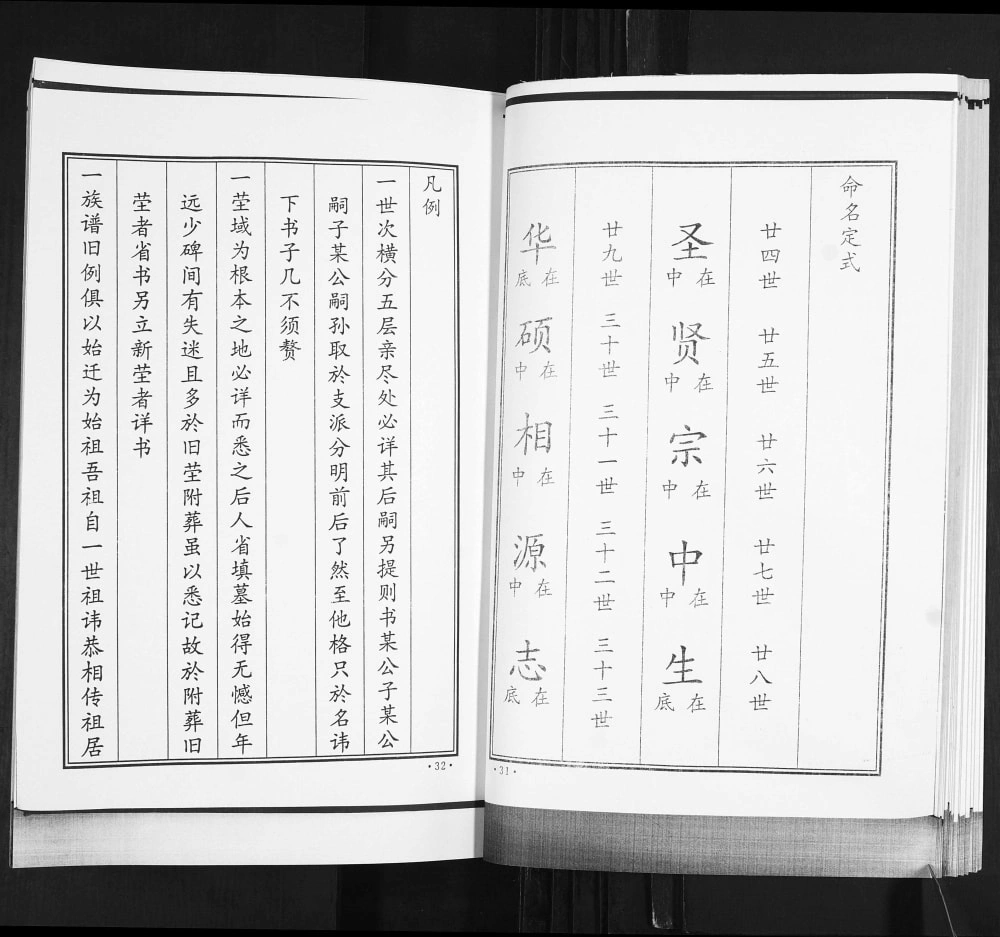 命名定式
廿四世 廿五世 廿六世 廿七世 廿八世
圣在中 贤在中 宗在中 中在中 生在底
廿九世 三十世 三十一世 三十二世 三十三世
华在底 硕在中 相在中 源在中 志在底
·31·
凡例
一世次横分五层亲尽处必详其后嗣另提则书某公子某公
嗣子某公嗣孙取於支派分明前后了然至他格只於名讳
下书子几不须赘
一茔域为根本之地必详而悉之后人省填墓始得无憾但年
远少碑间有失迷且多於旧茔附葬虽以悉记故於附葬旧
茔者省书另立新茔者详书
一族谱旧例俱以始迁为始祖吾祖自一世祖讳恭相传祖居
·32·